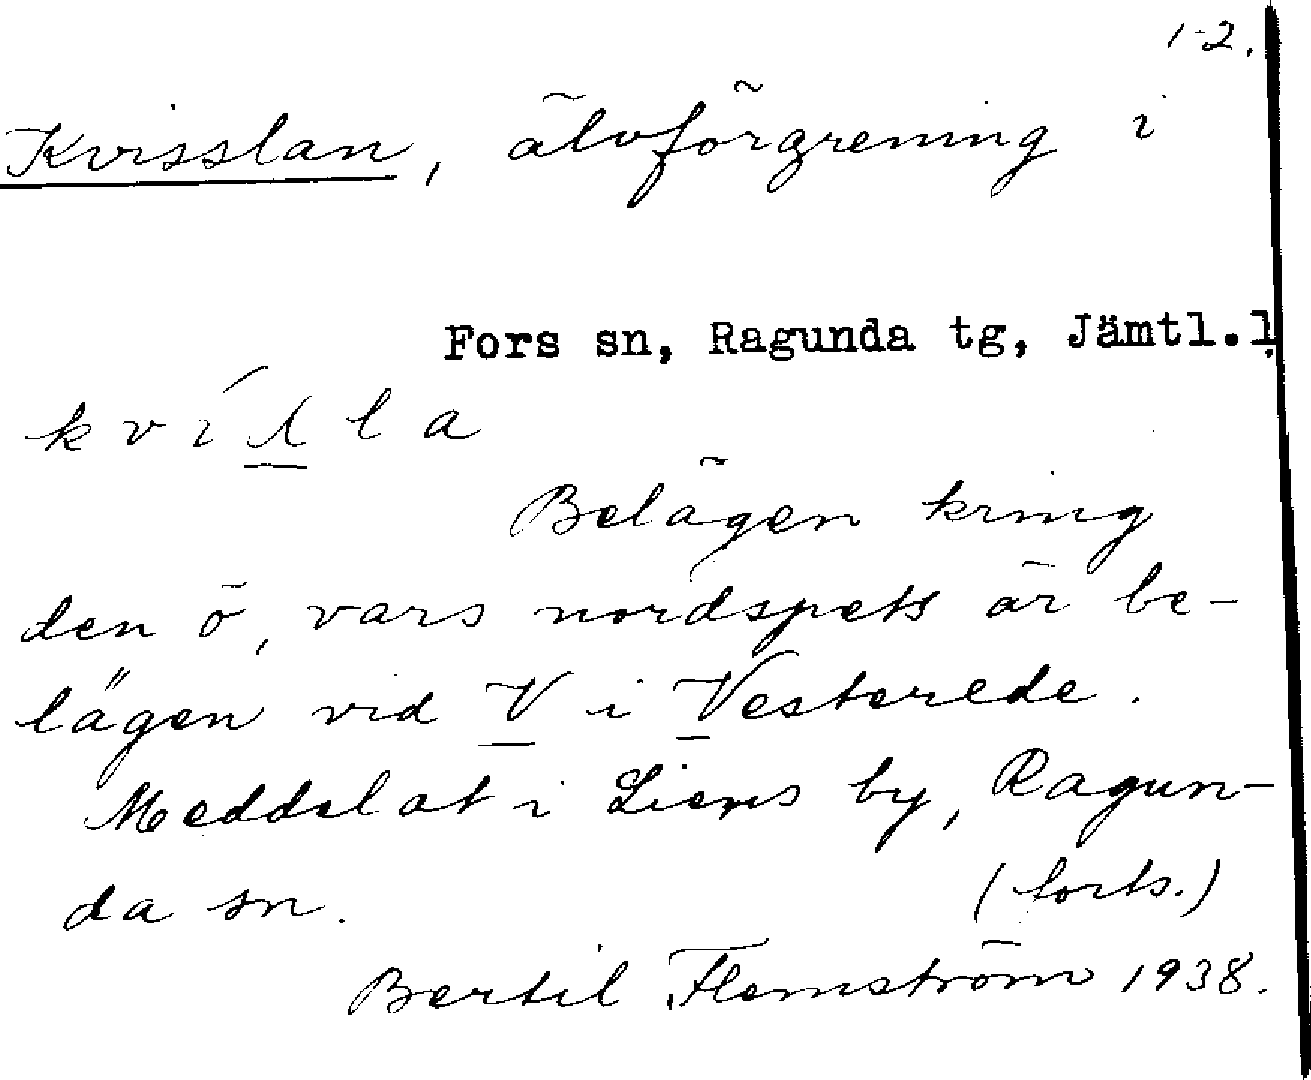 1-2.
Kvisslan, älvförgrening i
Fors sn, Ragunda tg, Jämtl.l
Belägen kring
den ö, vars nordspets är be-
lägen vid V i Vesterede.
Meddelat i Liens by, Ragun-
da sn. (forts.)
Bertil Flemström 1938.